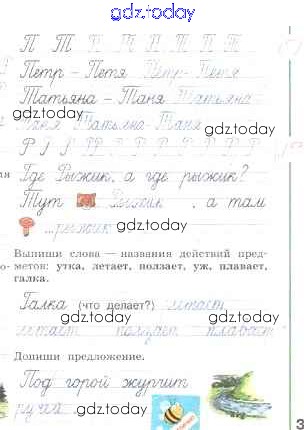 gdz.today
П Т П Т П Т П Т
Петр - Петя Петр - Петя
gdz.today
Татьяна - Таня Татьяна -
Таня Татьяна - Таня gdz.today
gdz.today
Где Рыжик, а где рыжик?
Тут Рыжик , а там
gdz.today
рыжик gdz.today
Выпиши слова — названия действий пред-
метов: утка, летает, ползает, уж, плавает,
галка.
gdz.today
Галка (что делает?) летает
летает ползает плавает
gdz.today
Допиши предложение.
Под горой журчит
ручей gdz.today gdz.today
3